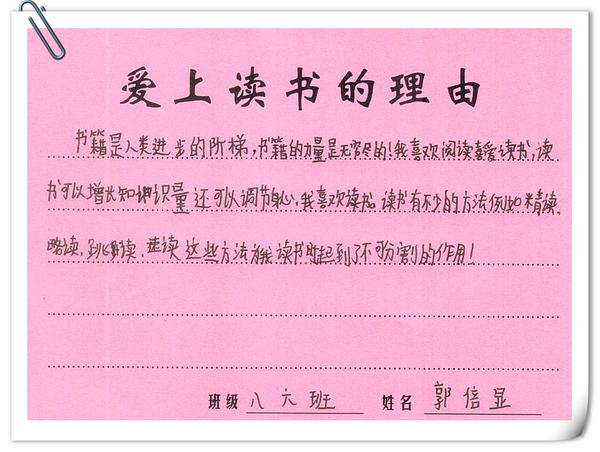 爱上读书的理由
书籍是人类进步的阶梯，书籍的力量是无穷尽的！我喜欢阅读喜爱读书，读
书可以增长知识量还可以调节身心，我喜欢读书。读书有不少的方法例如精读、
略读、跳读、速读这些方法为我读书时起到了不可分割的作用！
班级 八六班 姓名 郭信显